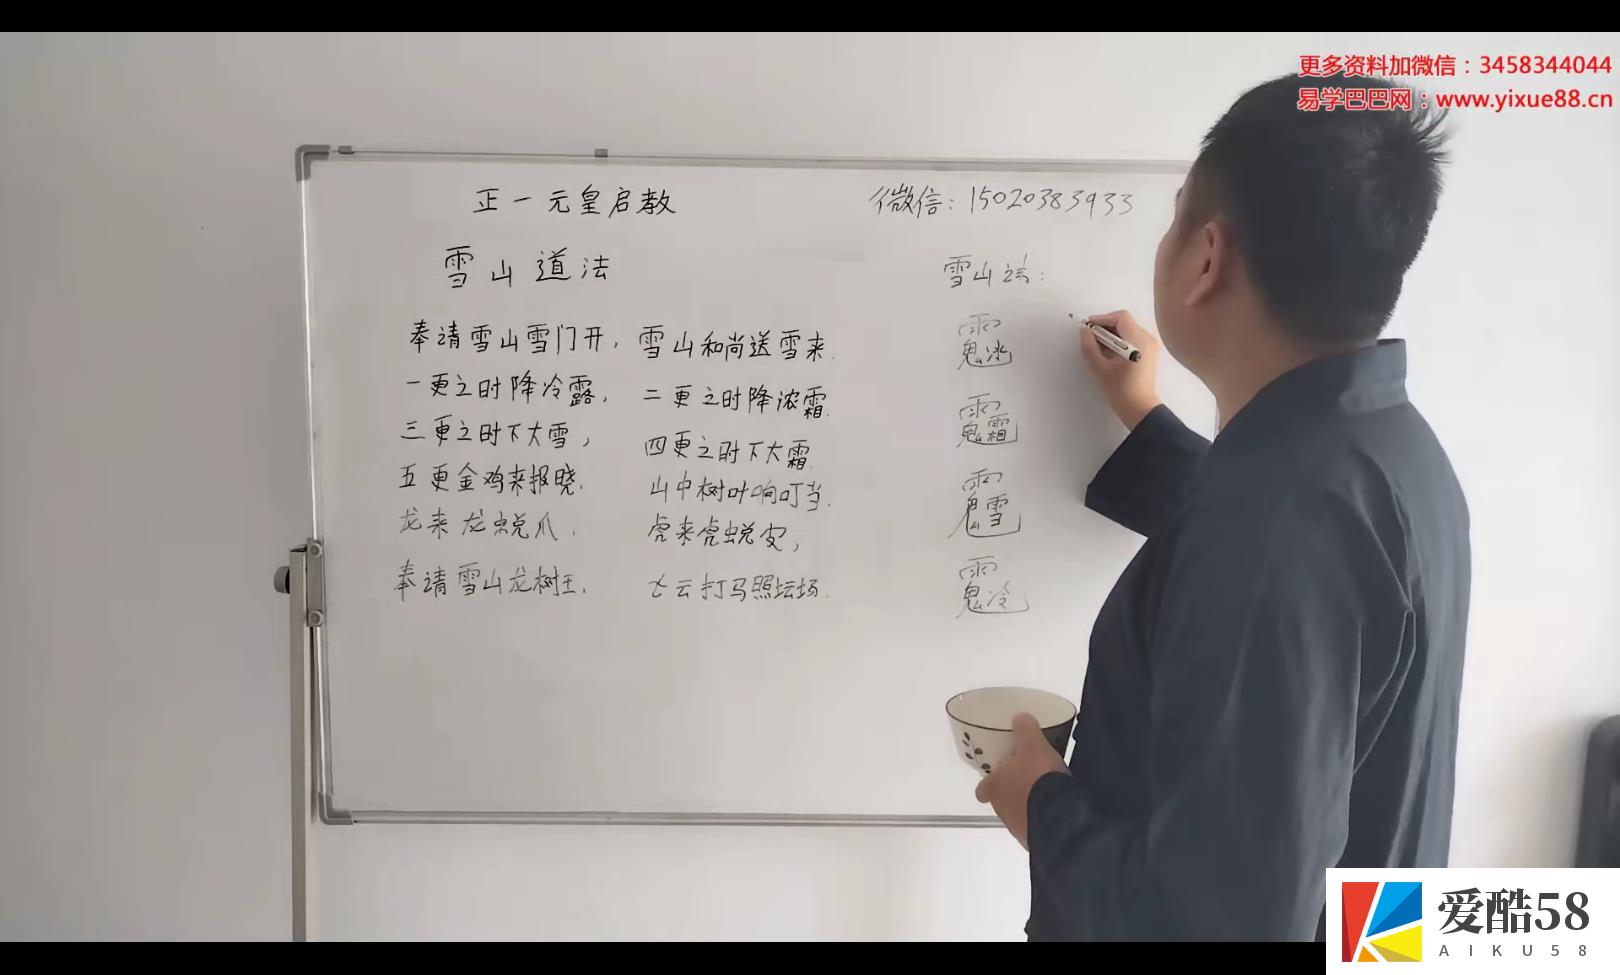 更多资料加微信：3458344044
易学巴巴网：www.yixue88.cn
正一元皇启教
微信：15020383933
雪山道法
奉请雪山雪门开，雪山和尚送雪来.
一更之时降冷露，二更之时降浓霜.
三更之时下大雪，四更之时下大霜.
五更金鸡来报晓.山中树叶响叮当.
龙来龙蜕爪.虎来虎蜕皮，
奉请雪山龙树王.飞云打马照坛场.
雪山讳：
爱酷58
AIKU58